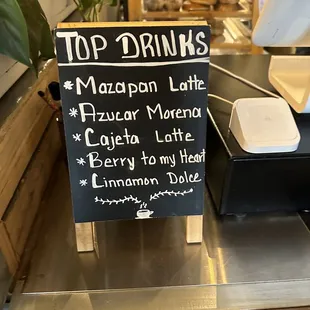 TOP DRINKS
* Mazapan Latte
* Azucar Morena
* Cajeta Latte
* Berry to my Heart
* Cinnamon Dolce